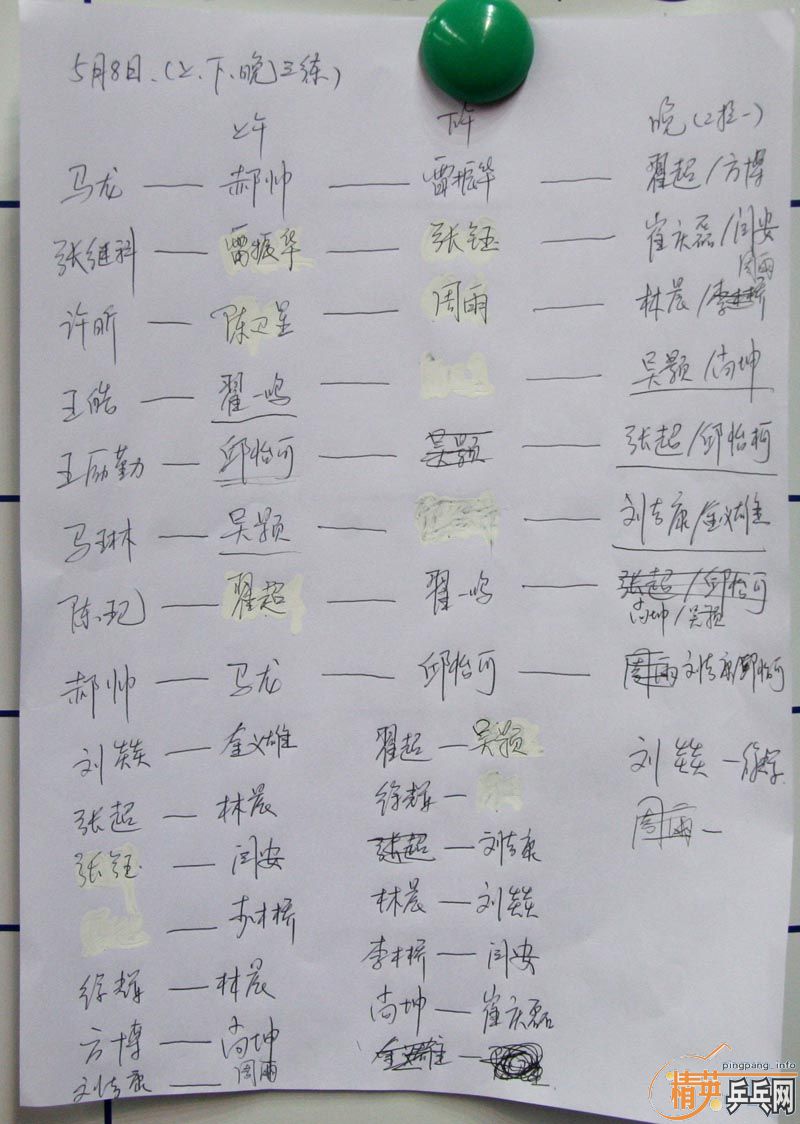 5月8日.(上、下、晚)三练)
上午 下午 晚(2指一)
马龙 — 郝帅 — 雷振华 — 翟超/方博
张继科 — 雷振华 — 张钰 — 崔庆磊/闫安
周雨
许昕 — 陈卫星 — 周雨 — 林晨/李木桥
王皓 — 翟一鸣 — — 吴颢/尚坤
王励勤 — 邱怡可 — 吴颢 — 张超/邱怡可
马琳 — 吴颢 — — 刘吉康/金义雄
陈玘 — 翟超 — 翟一鸣 — 张超/邱怡可
尚坤/吴颢
郝帅 — 马龙 — 邱怡可 — 周雨 刘吉康/邱怡可
刘燚 — 金义雄 翟超 — 吴颢 刘燚 — 徐辉
张超 — 林晨 徐辉 — 周雨 —
张钰 — 闫安 张超 — 刘吉康
— 李木桥 林晨 — 刘燚
徐辉 — 林晨 李木桥 — 闫安
方博 — 尚坤 尚坤 — 崔庆磊
刘吉康 — 周雨 金义雄 —
pingpang.info
精英乒乓网